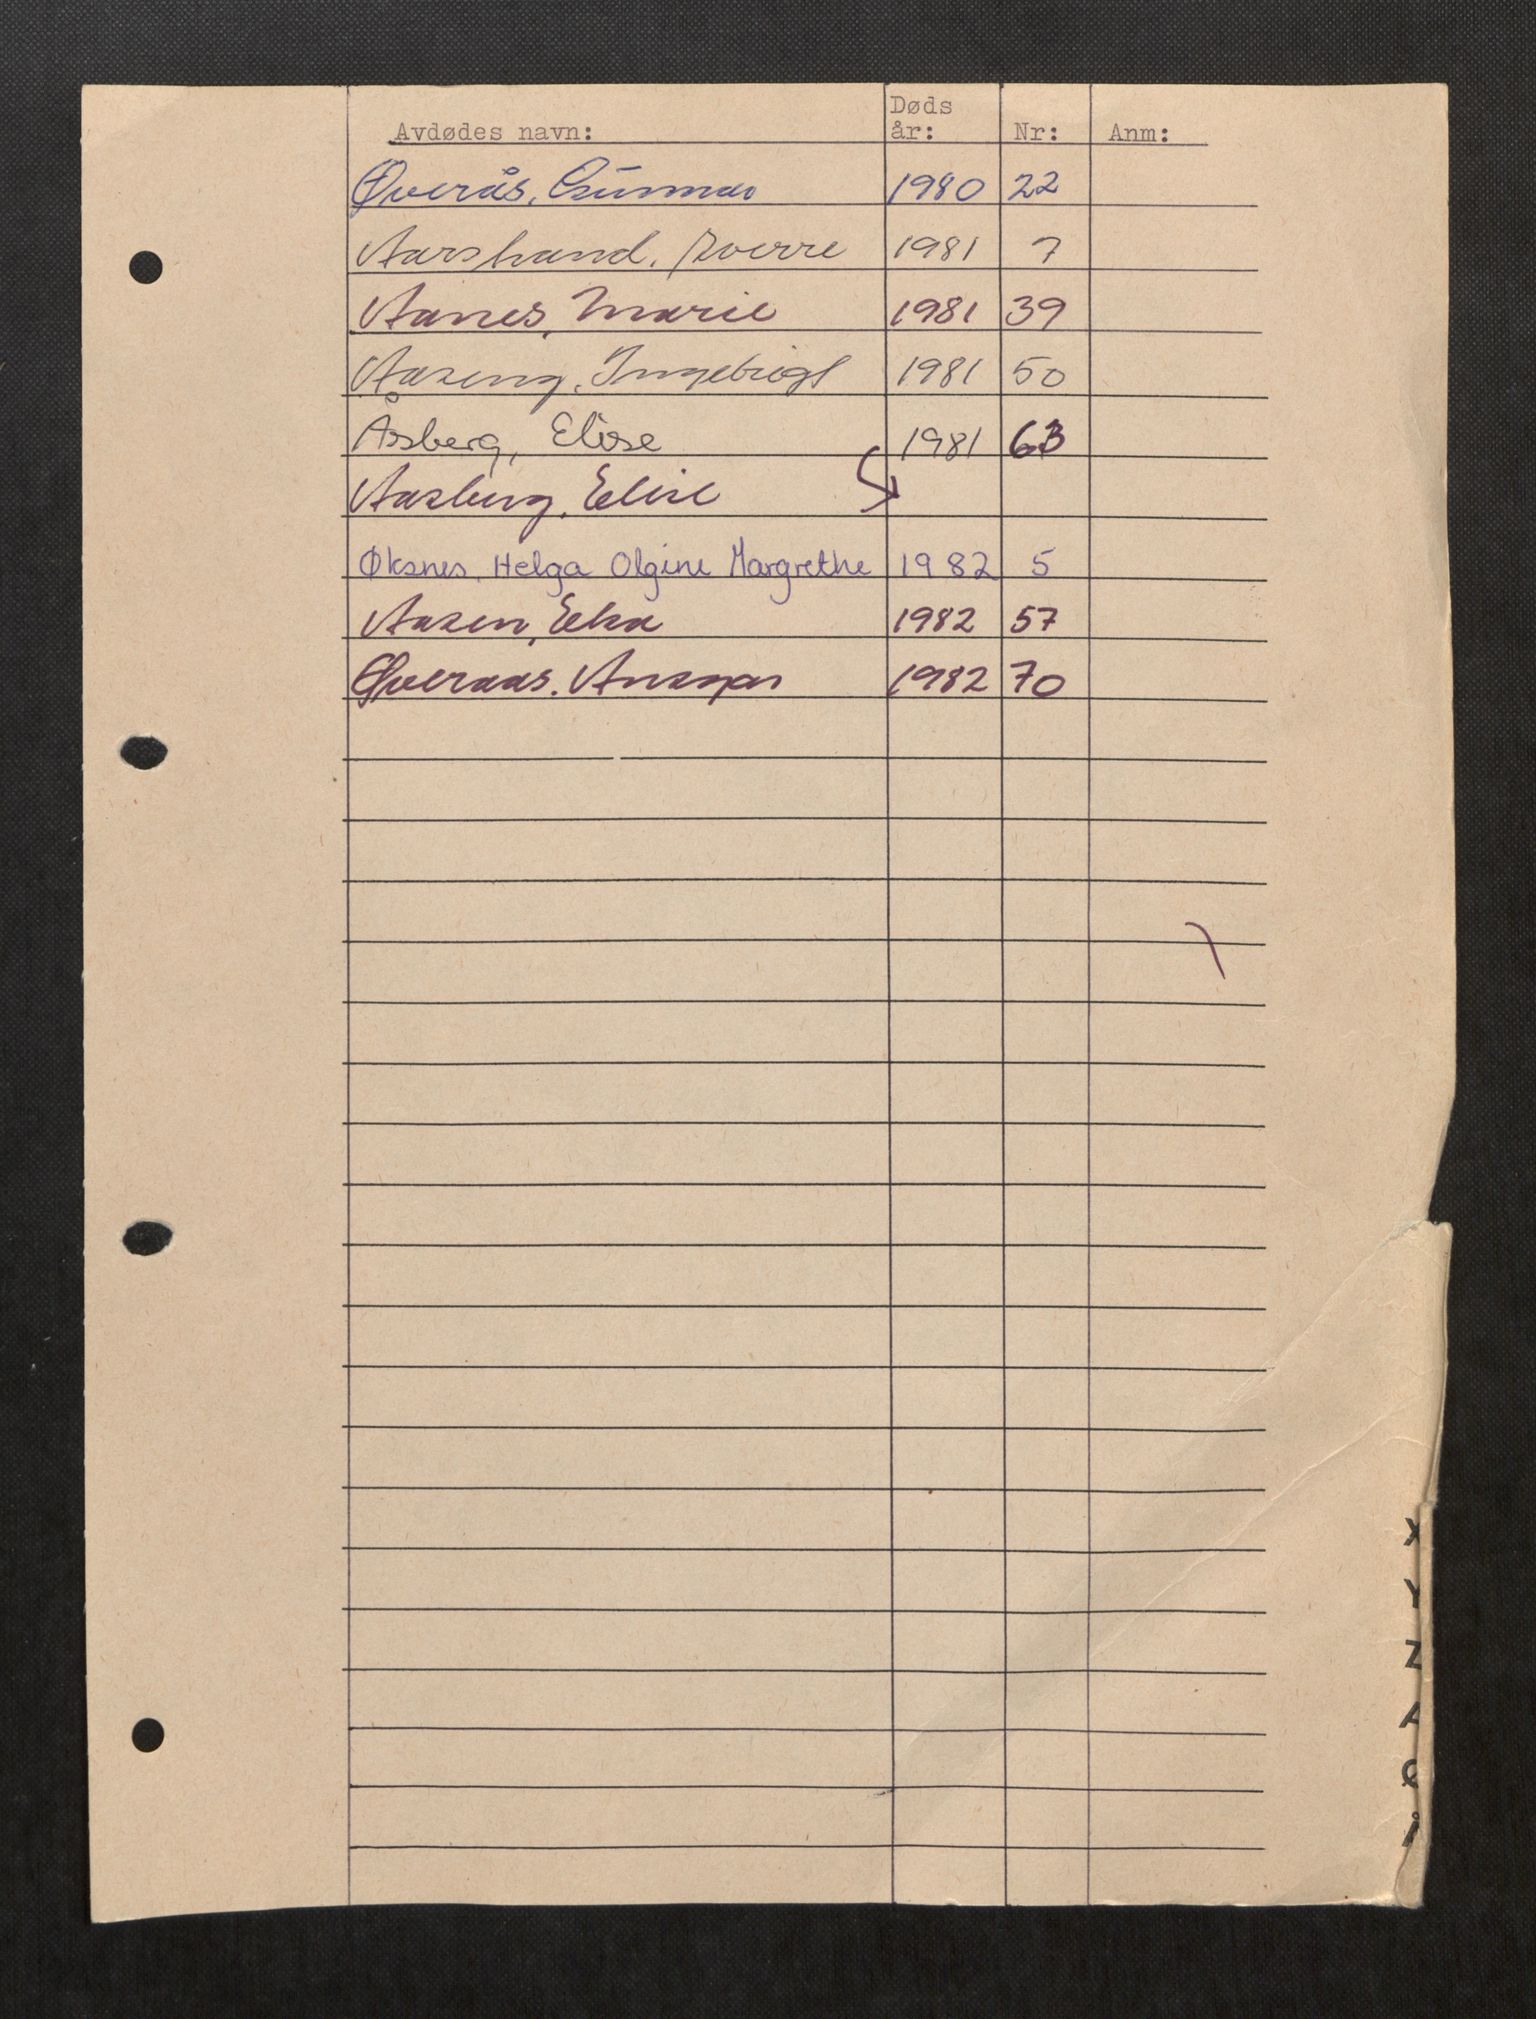 Døds
Avdødes navn: år: Nr: Anm:
Øverås, Gunnar 1980 22
Aarshand, Sverre 1981 7
Aanes, Marie 1981 39
Aaseng, Ingebrigt 1981 50
Åsberg, Elise 1981 63
Aasberg, Elise
Øksnes, Helga Olgine Margrethe 1982 5
Aasen, Elsa 1982 57
Øveraas, Ansgar 1982 70
X
Y
Z
Å